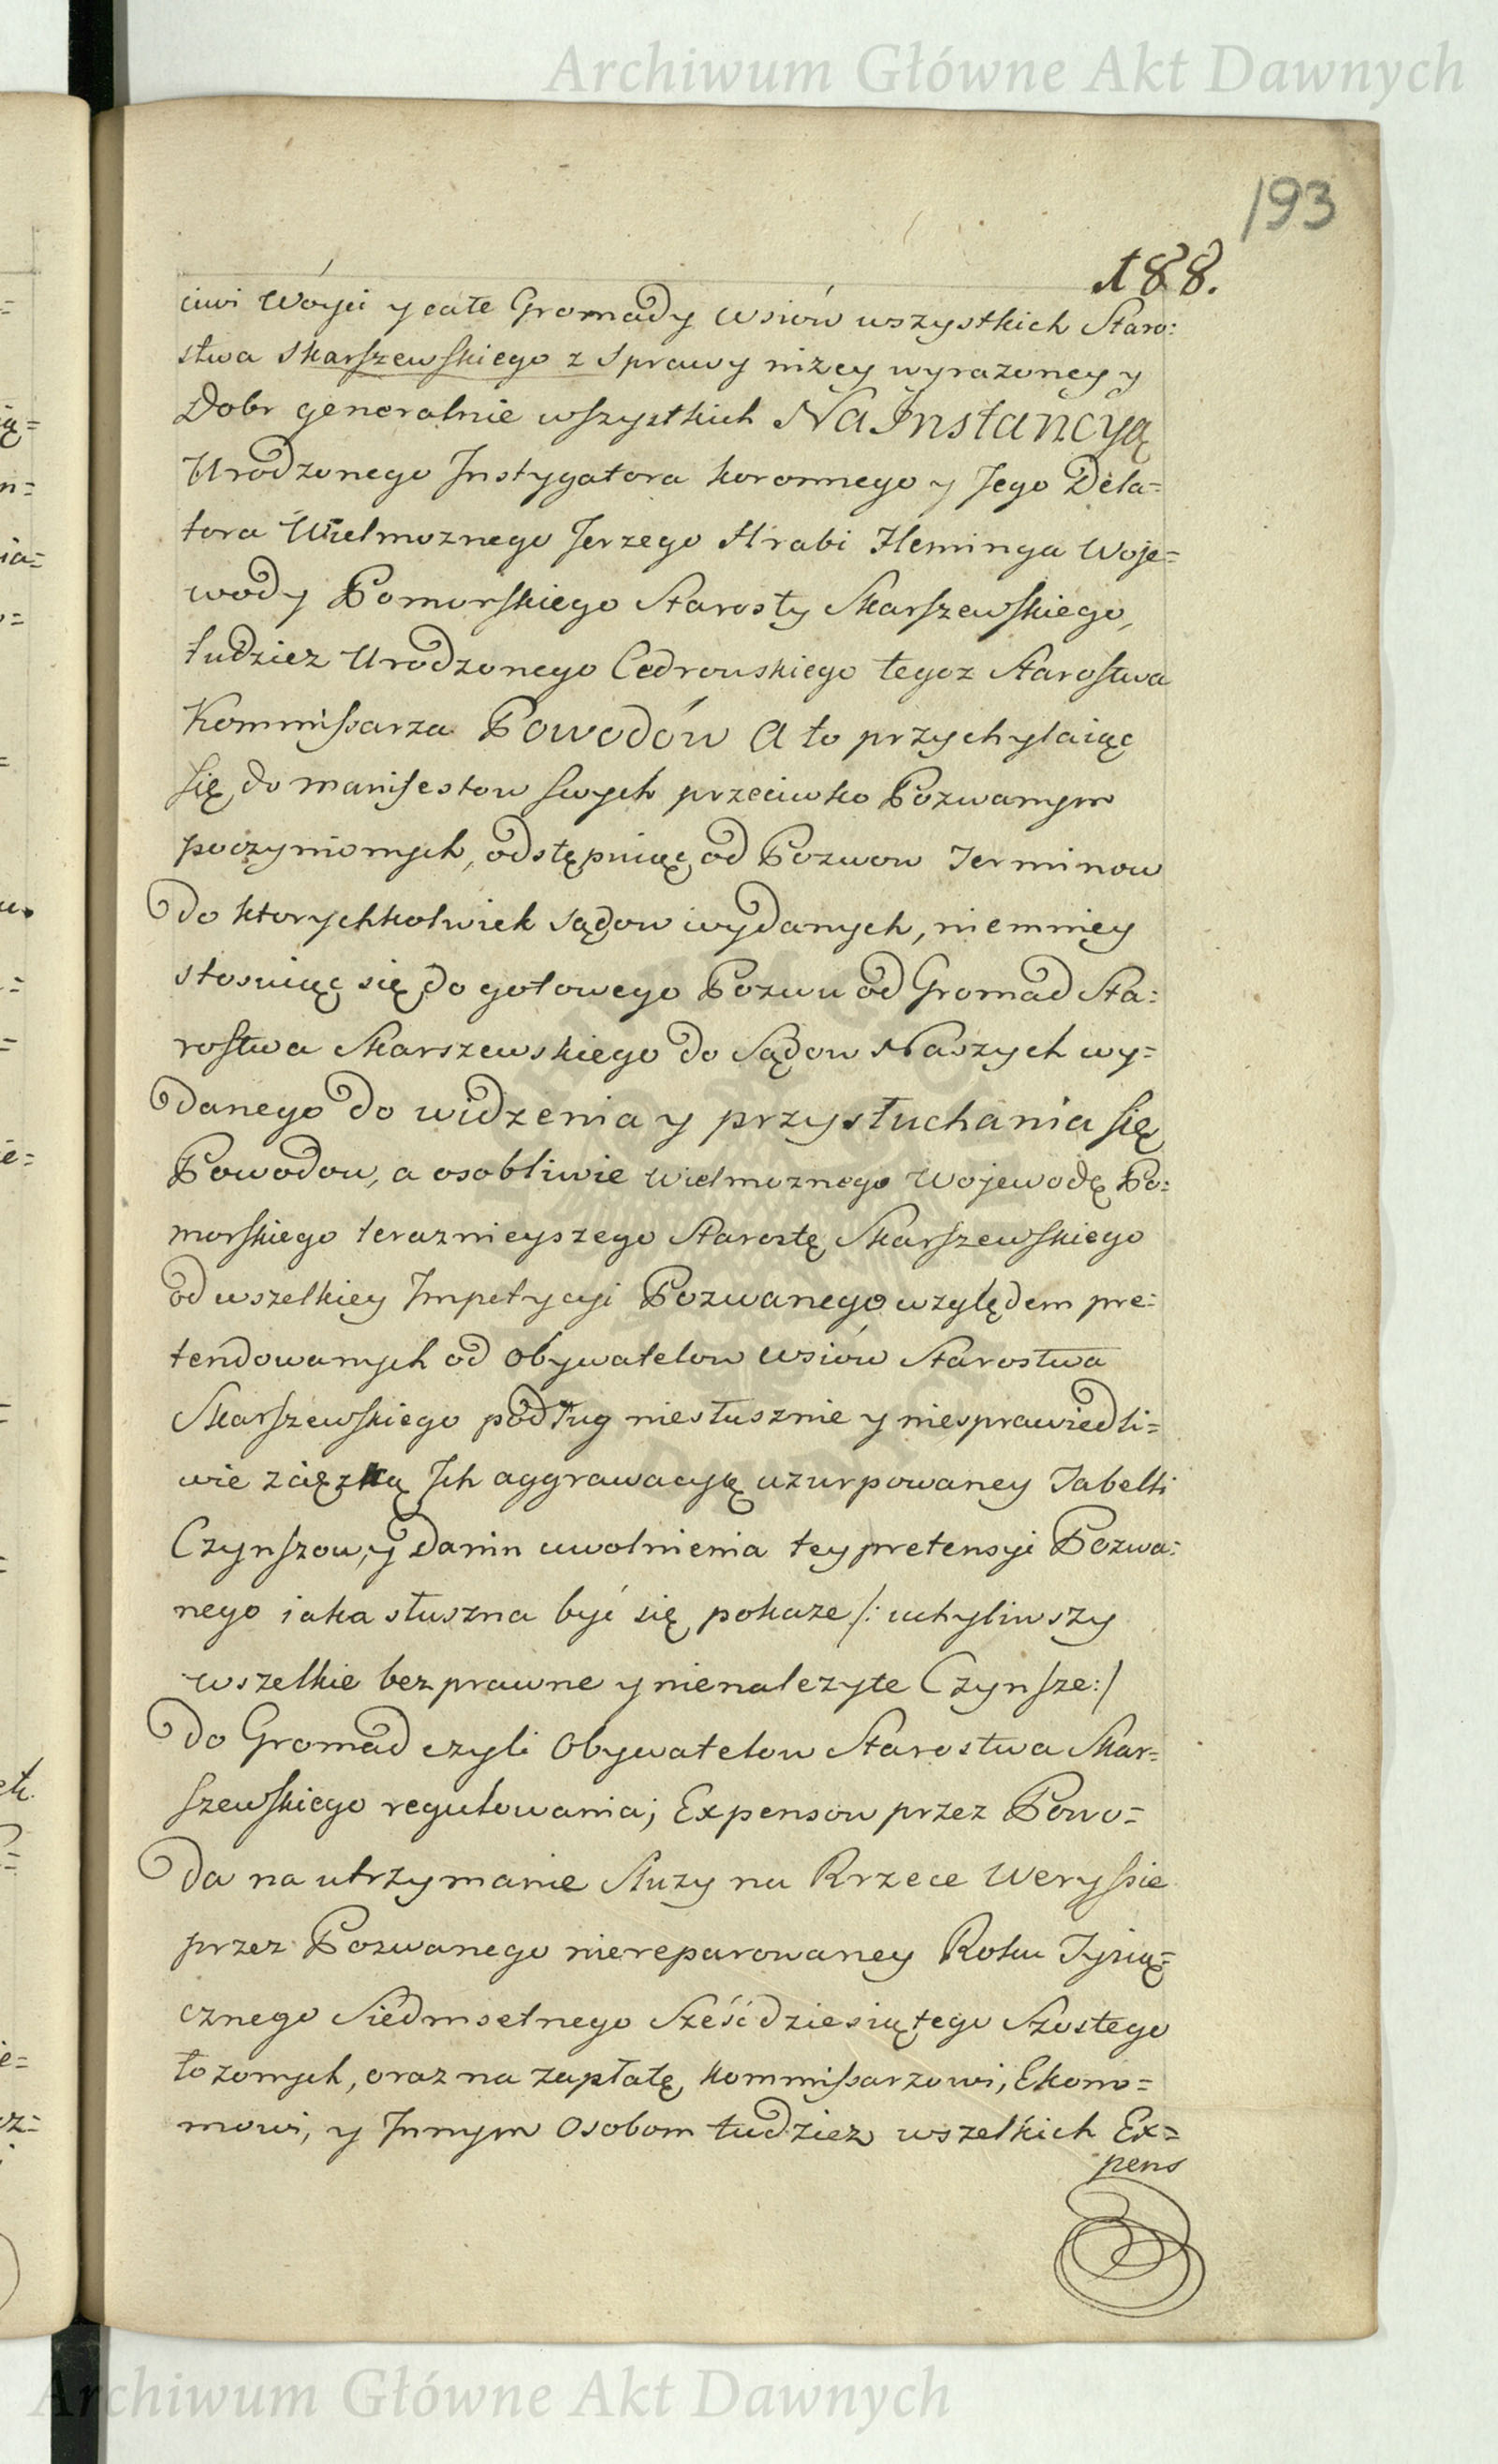 Archiwum Główne Akt Dawnych
193
188.
ciwi Wóyci y całe Gromady wsiów wszystkich Staro:
stwa Skarszewskiego z Sprawy niżey wyrazoney y
Dobr generalnie wszystkich Na Instancyą
Urodzonego Instygatora koronnego y Jego Dela=
tora Wielmoznego Jerzego Hrabi Fleminga Woje=
wody Pomorskiego Starosty Skarszewskiego,
tudziez Urodzonego Cedrowskiego tegoz Starostwa
Kommissarza Powodów A to przychylaiąc
się do manifestow swych przeciwko Pozwanym
poczynionych, odstępuiąc od Pozwow Terminow
do ktorychkolwiek sądow wydanych, niemniey
stosuiąc się do gotowego Pozwu od Gromad Sta:
rostwa Skarszewskiego do Sądow Naszych wy=
danego do widzenia y przysłuchania się
Powodow, a osobliwie Wielmoznego Wojewodę Po:
morskiego teraznieyszego Starostę Skarszewskiego
od wszelkiey Impetycyi Pozwanego względem pre:
tendowanych od Obywatelow wsiów Starostwa
Skarszewskiego podług niesłusznie y niesprawiedli=
wie z cięzką Ich aggrawacyą uzurpowaney Tabelli
Czynszow, y Danin uwolnienia tey pretensyi Pozwa:
nego iaka słuszna być się pokaze /: uchyliwszy
wszelkie bezprawne y nienalezyte Czynsze :/
do Gromad czyli Obywatelow Starostwa Skar=
szewskiego regulowania; Expensow przez Powo=
da na utrzymanie Sluzy na Rzece Weryssie
przez Pozwanego niereparowaney Roku Tysią=
cznego Siedmsetnego Sześćdziesiątego Szostego
łozonych, oraz na zapłatę kommissarzowi, Ekono=
mowi, y Innym Osobom tudziez wszelkich Ex=
pens
Archiwum Główne Akt Dawnych